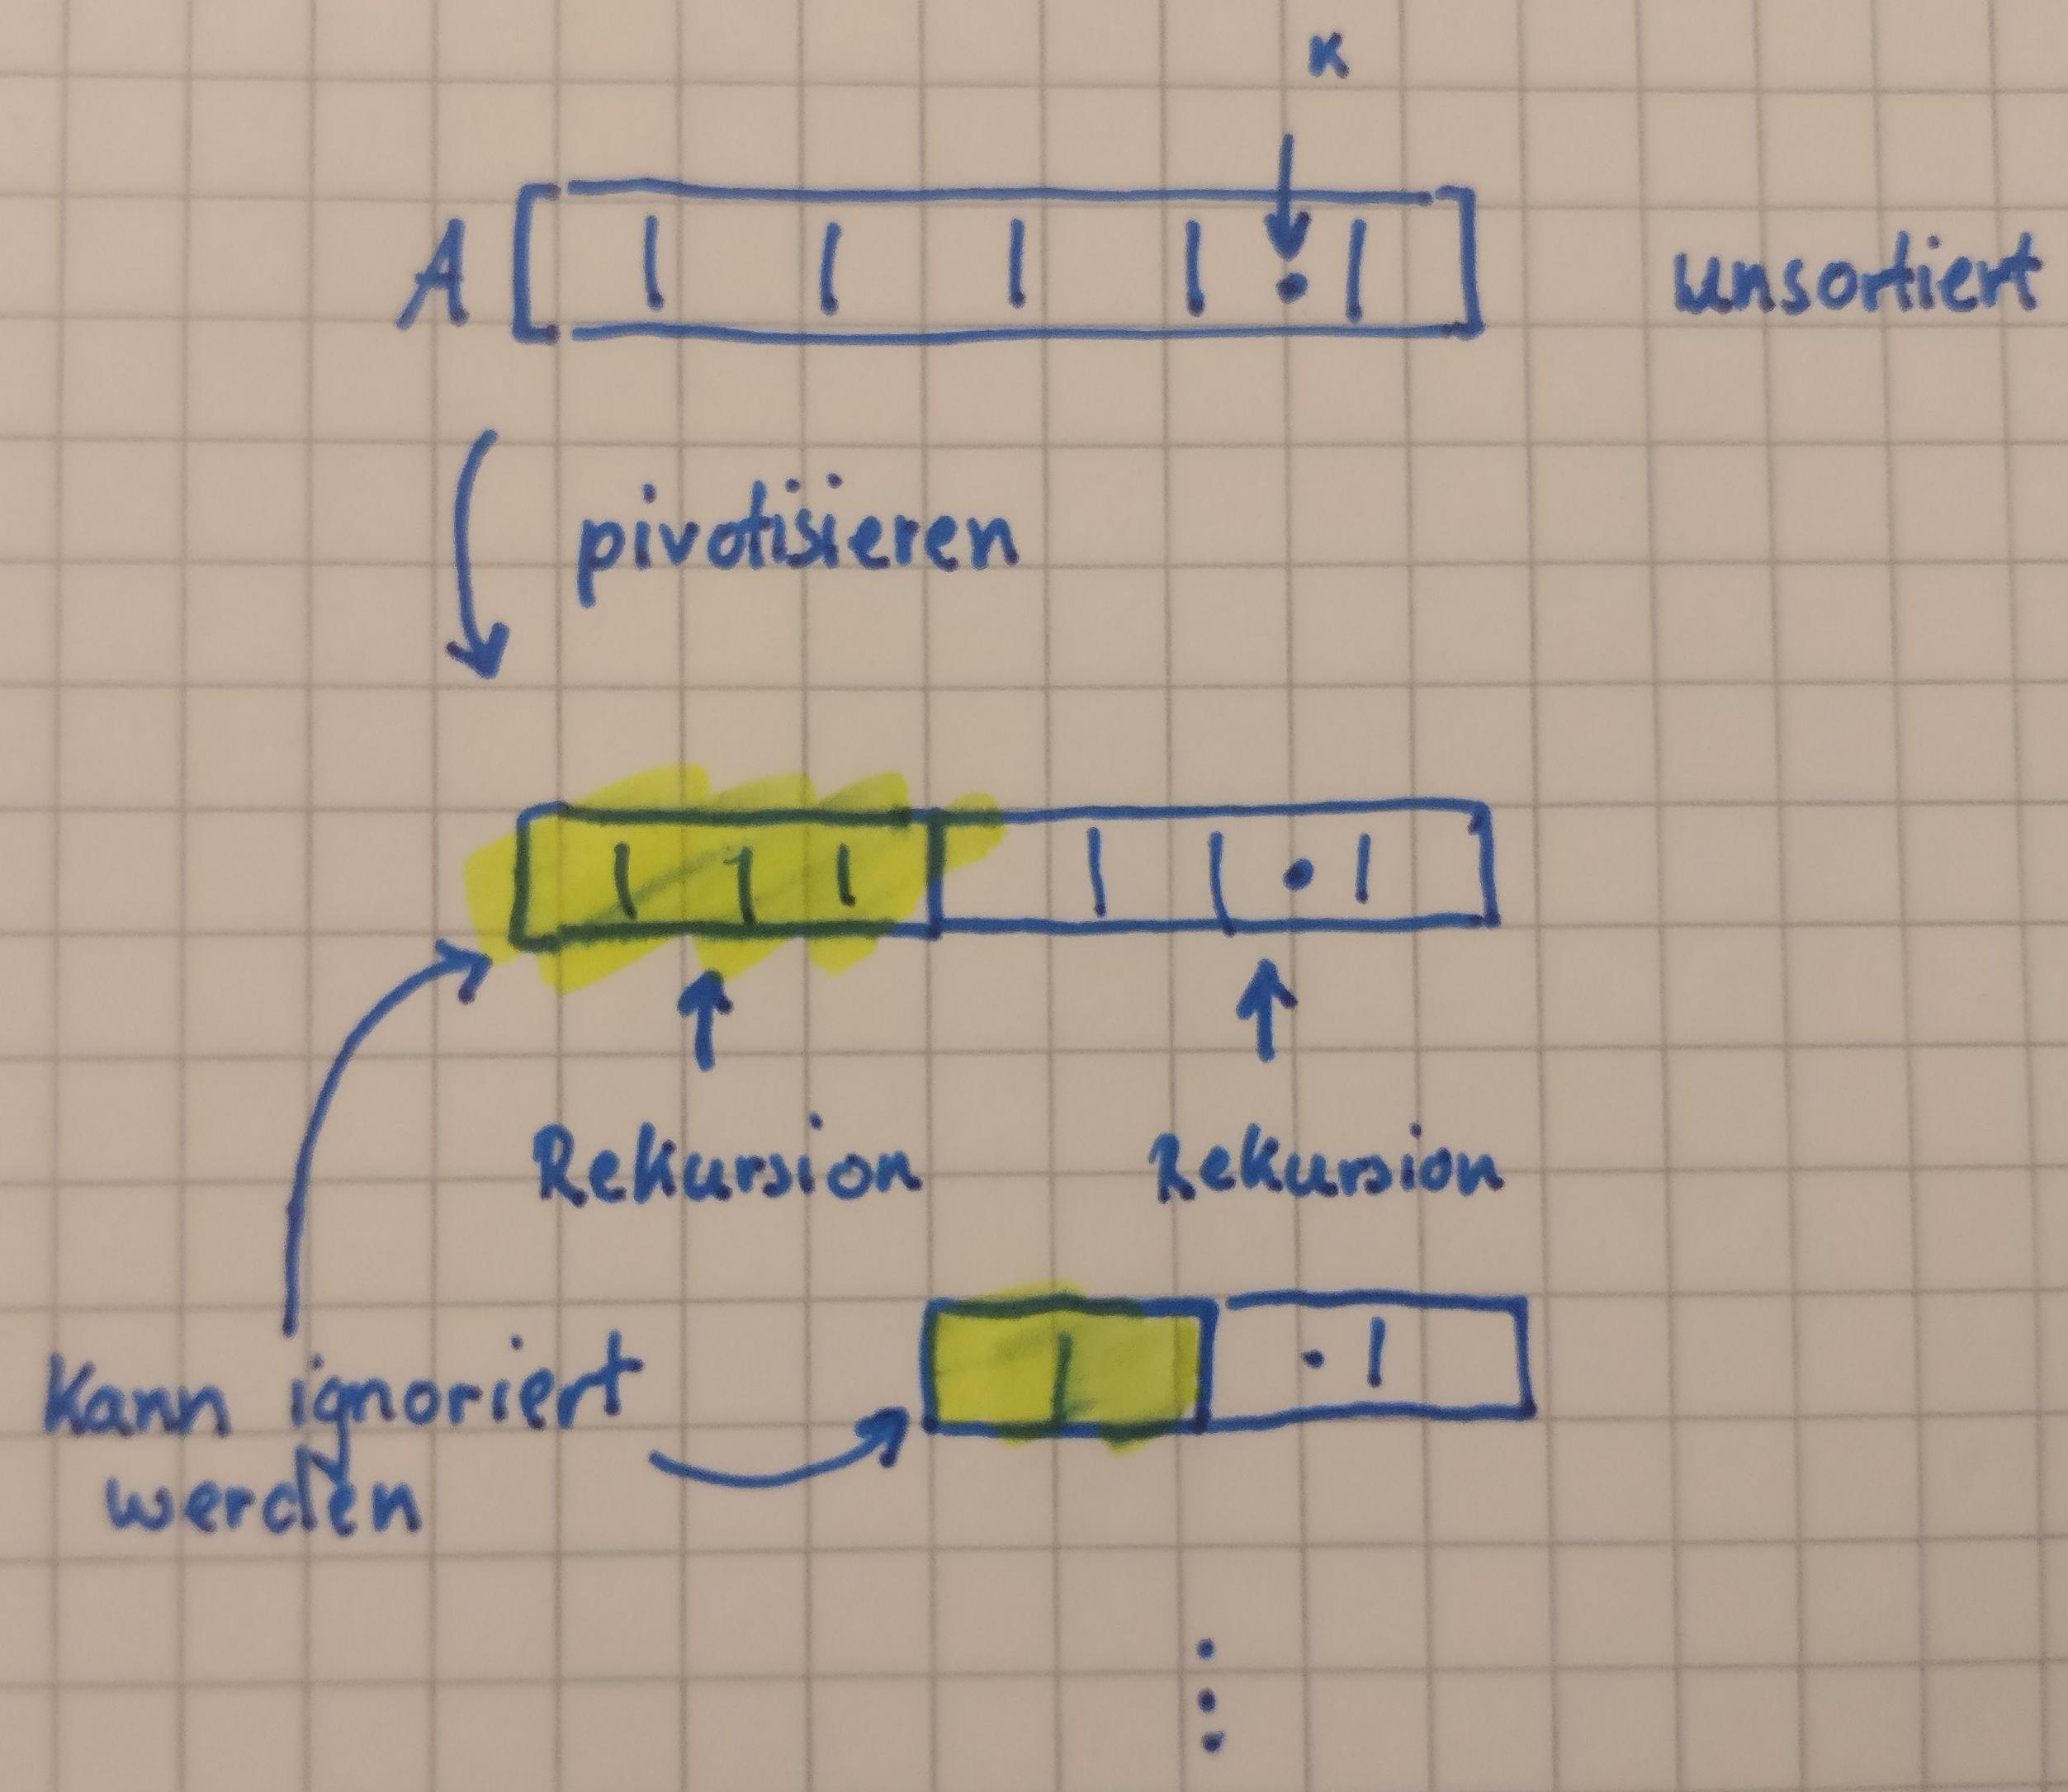 K
A unsortiert
pivotisieren
Rekursion Rekursion
Kann ignoriert
werden